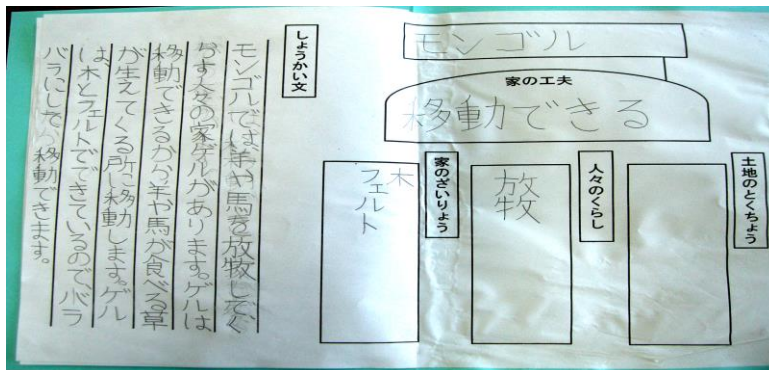 モンゴル
家の工夫
移動できる
土地のとくちょう
人々のくらし
放牧
家のざいりょう
木
フェルト
しょうかい文
モンゴルでは、羊や馬を放牧して、く
らす人々の家ゲルがあります。ゲルは
移動できるから、羊や馬が食べる草
が生えてくる所に移動します。ゲル
は、木とフェルトでできているので、バラ
バラにして、移動できます。